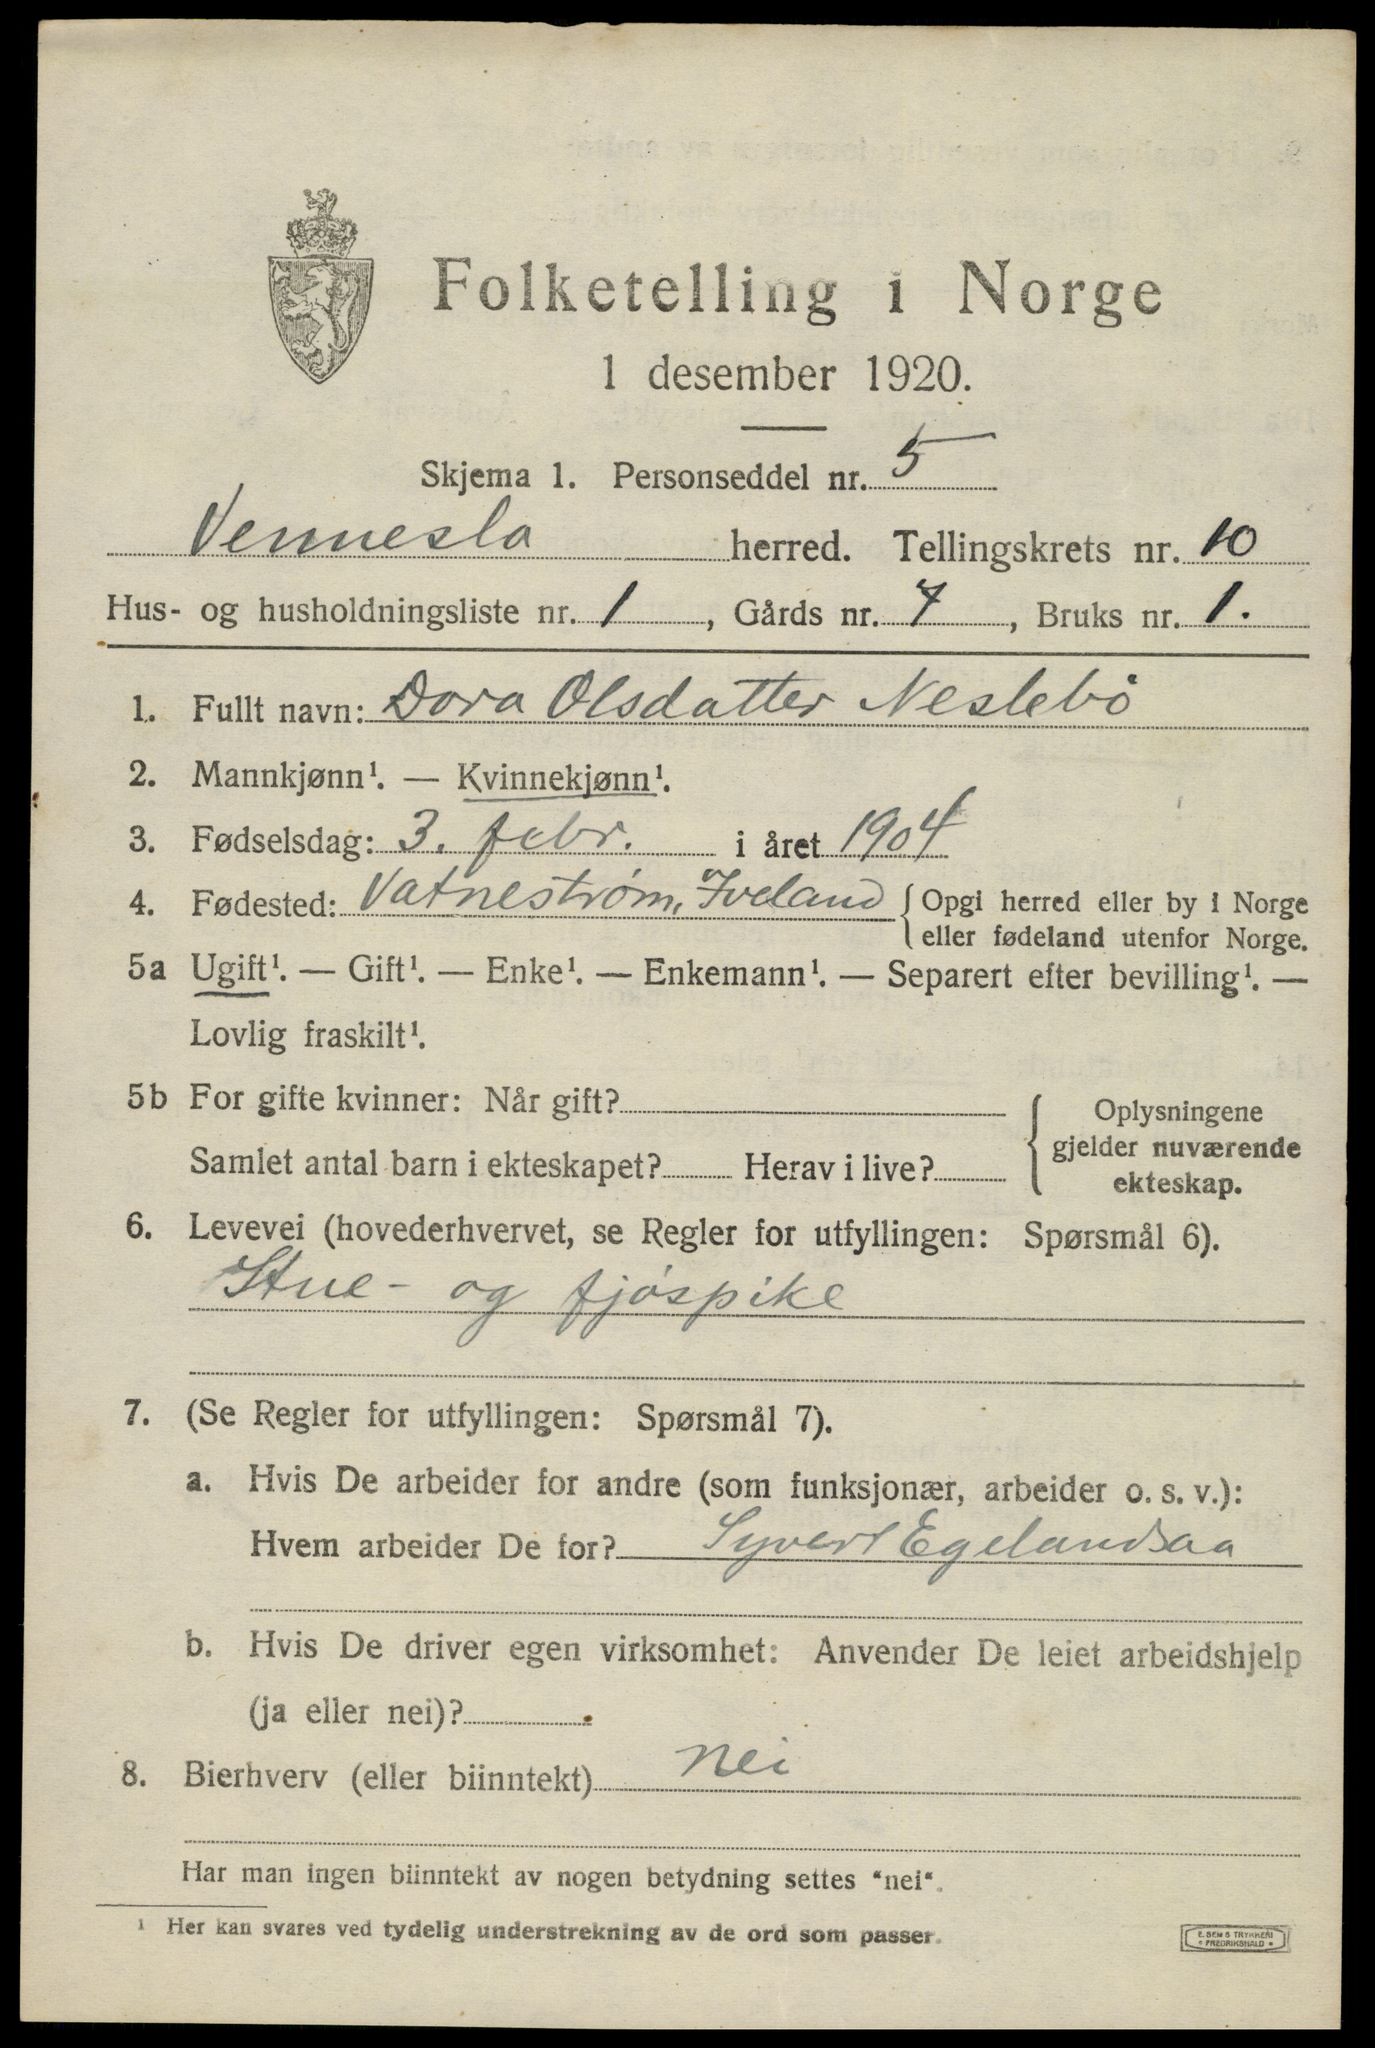 Folketelling i Norge
1 desember 1920.
Skjema 1. Personseddel nr. 5
Vennesla herred. Tellingskrets nr. 10
Hus- og husholdningsliste nr. 1, Gårds nr. 7, Bruks nr. 1.
1. Fullt navn: Dora Olsdatter Neslebö
2. Mannkjønn¹. — Kvinnekjønn¹.
3. Fødselsdag: 3. febr. i året 1904
4. Fødested: Vatneström, Iveland { Opgi herred eller by i Norge
eller fødeland utenfor Norge.
5a Ugift¹. — Gift¹. — Enke¹. — Enkemann¹. — Separert efter bevilling¹. —
Lovlig fraskilt¹.
5b For gifte kvinner: Når gift?
Samlet antal barn i ekteskapet? Herav i live?
Oplysningene
gjelder nuværende
ekteskap.
6. Levevei (hovederhvervet, se Regler for utfyllingen: Spørsmål 6).
Stue- og fjöspike
7. (Se Regler for utfyllingen: Spørsmål 7).
a. Hvis De arbeider for andre (som funksjonær, arbeider o. s. v.):
Hvem arbeider De for? Syvert Egelandsaa
b. Hvis De driver egen virksomhet: Anvender De leiet arbeidshjelp
(ja eller nei)?
8. Bierhverv (eller biinntekt) nei
Har man ingen biinntekt av nogen betydning settes "nei".
¹ Her kan svares ved tydelig understrekning av de ord som passer.
E. SEM S TRYKKERI
• FREDRIKSHALD •